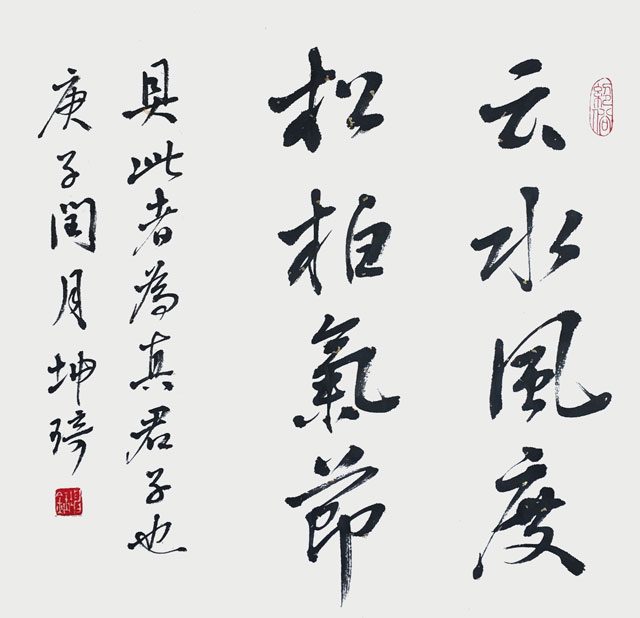 云水风度
松柏氣節
具此者為真君子也
庚子閏月坤琦